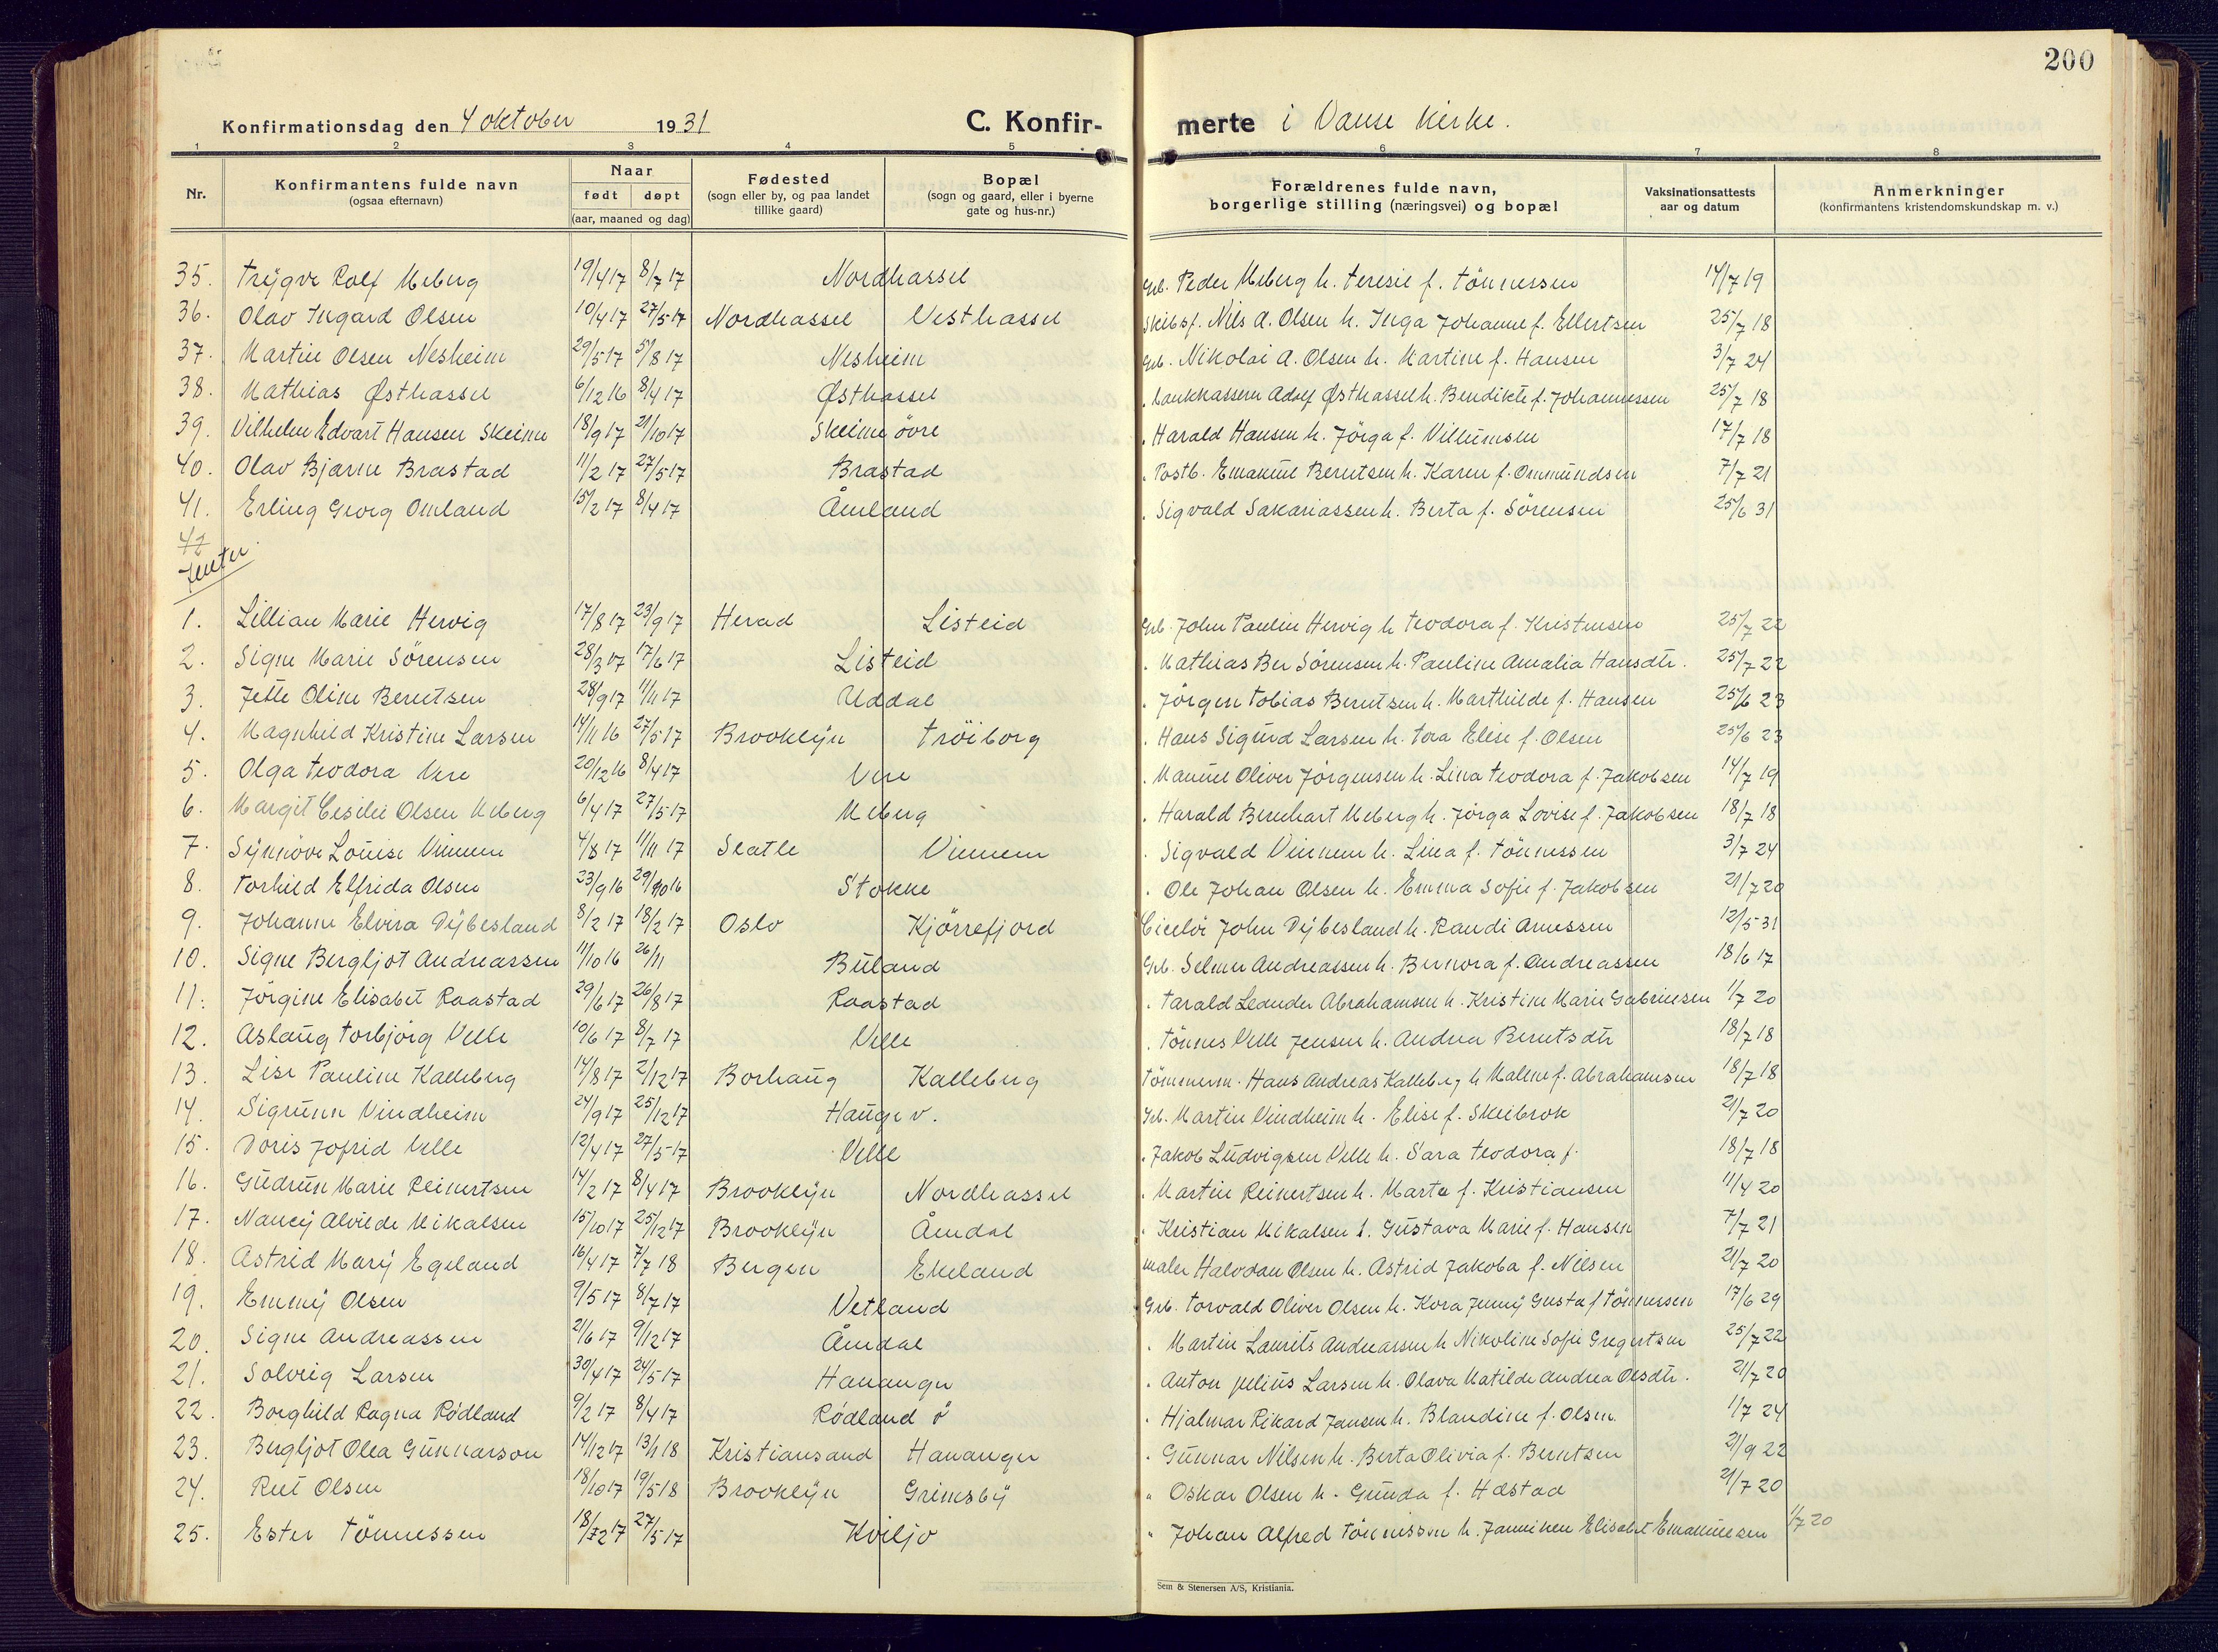 200
Konfirmationsdag den 4 oktober 1931 C. Konfir- merte i Vanse kirke.
1 2 3 4 5 6 7 8
Nr. Konfirmantens fulde navn (ogsaa efternavn) Naar født døpt (aar, maaned og dag) Fødested (sogn eller by, og paa landet tillike gaard) Bopæl (sogn og gaard, eller i byerne gate og hus-nr.) Forældrenes fulde navn, borgerlige stilling (næringsvei) og bopæl Vaksinationsattests aar og datum Anmerkninger (konfirmantens kristendomskundskap m. v.)
35. Trygve Rolf Meberg 19/4 17 8/7 17 Nordhassel Grb. Peder Meberg h. Teresie f. Tönnessen 14/7 19
36. Olav Ingard Olsen 10/4 17 27/5 17 Nordhassel Vesthassel Skibsf. Nils A. Olsen h. Inga Johanne f. Ellertsen 25/7 18
37. Martin Olsen Nesheim 29/5 17 5/8 17 Nesheim Grb. Nikolai A. Olsen h. Martine f. Hansen 3/7 24
38. Mathias Østhassel 6/12 16 8/4 17 Østhassel . Bankkasserer Adolf Østhassel h. Bendikte f. Johannessen 25/7 18
39. Vilhelm Edvart Hansen Skeime 18/9 17 21/10 17 Skeime övre . Harald Hansen h. Jörga f. Villumsen 17/7 18
40. Olav Bjarne Brastad 11/2 17 27/5 17 Brastad . Postb. Emanuel Berntsen h. Karen f. Ommundsen 7/7 21
41. Erling Georg Omland 15/2 17 8/4 17 Åmland . Sigvald Sakariassen h. Berta f. Sörensen 25/6 31
42
Jenter
1. Lillian Marie Hervig 17/8 17 23/9 17 Herad Listeid Grb. John Paulin Hervig h. Teodora f. Kristensen 25/7 22
2. Signe Marie Sörensen 28/3 17 17/6 17 Listeid . Mathias Ber Sörensen h. Pauline Amalia Hansdtr. 25/7 22
3. Jette Oline Berntsen 28/9 17 11/11 17 Uddal . Jörgen Tobias Berntsen h. Marthilde f. Hansen 25/6 23
4. Magnhild Kristine Larsen 14/11 16 27/5 17 Brooklyn Tröiborg . Hans Sigurd Larsen h. Tora Elise f. Olsen 25/6 23
5. Olga Teodora Vere 20/12 16 8/4 17 Vere . Manuel Oliver Jörgensen h. Lina Teodora f. Jakobsen 14/7 19
6. Margit Cesilie Olsen Meberg 6/4 17 27/5 17 Meberg . Harald Bernhart Meberg h. Jörga Lovise f. Jakobsen 18/7 18
7. Synnöve Louise Vinnem 4/8 17 11/11 17 Seatle Vinnem . Sigvald Vinnem h. Lina f. Tönnessen 3/7 24
8. Torhild Elfrida Olsen 23/9 16 29/10 16 Stokke . Ole Johan Olsen h. Emma Sofie f. Jakobsen 21/7 20
9. Johanne Elvira Dybesland 8/2 17 18/2 17 Oslo Kjörrefjord John Dybesland h. Randi Arnessen 12/5 31
10. Signe Bergljot Andreassen 11/10 16 26/11 Buland Grb. Selmer Andreassen h. Bernora f. Andreassen 18/6 17
11. Jörgine Elisabet Raastad 29/6 17 26/8 17 Raastad . Tarald Leander Abrahamsen h. Kristine Marie Gabrielsen 1/7 20
12. Aslaug Torbjörg Velle 10/6 17 8/7 17 Velle . Tönnes Velle Jensen h. Andrea Berntsdtr 18/7 18
13. Lise Pauline Kalleberg 14/8 17 2/12 17 Borhaug Kalleberg Tömmerm. Hans Andreas Kalleberg h. Malene f. Abrahamsen 18/7 18
14. Sigrunn Vindheim 24/9 17 25/12 17 Hauge v. Grb. Martin Vindheim h. Elise f. Skeibrok 21/7 20
15. Doris Jofrid Velle 12/4 17 27/5 17 Velle . Jakob Ludvigsen Velle h. Sara Teodora f. 18/7 18
16. Gudrun Marie Reinertsen 14/2 17 8/4 17 Brooklyn Nordhassel . Martin Reinertsen h. Marta f. Kristiansen 11/4 20
17. Nancy Alvilde Mikalsen 15/10 17 25/12 17 Brooklyn Åmdal . Kristian Mikalsen h. Gustava Marie f. Hansen 7/7 21
18. Astrid Mary Egeland 16/4 17 7/7 18 Bergen Ekeland maler Halvdan Olsen h. Astrid Jakoba f. Nilsen 21/7 20
19. Emmy Olsen 9/5 17 8/7 17 Vetland Grb. Torvald Oliver Olsen h. Kora Jenny Gusta f. Tönnessen 17/6 29
20. Signe Andreassen 2/6 17 9/12 17 Åmdal . Martin Laurits Andreassen h. Nikoline Sofie Gregertsen 25/7 22
21. Solveig Larsen 30/4 17 24/5 17 Hananger . Anton Julius Larsen h. Olava Matilde Andrea Olsdtr. 21/7 20
22. Borghild Ragna Rödland 9/2 17 8/4 17 Rödland ö . Hjalmar Rikard Jansen h. Blandine f. Olsen. 1/7 24
23. Bergljot Olea Gunnarson 14/12 17 13/1 18 Kristiansand Hananger . Gunnar Nilsen h. Berta Olivia f. Berntsen 21/9 22
24. Rut Olsen 18/10 17 19/5 18 Brooklyn Grimsby " Oskar Olsen h. Gunda f. Hæstad 21/7 20
25. Ester Tönnessen 27/5 17 Kviljo " Johan Alfred Tönnessen h. Janniken Elisabet Emanuelsen 1/7 20
Sem & Stenersen A/S, Kristiania.